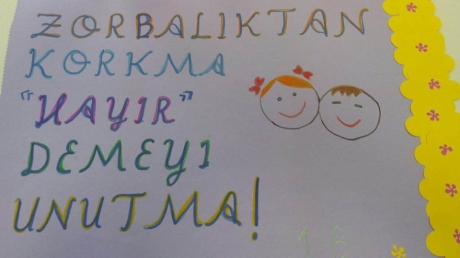 ZORBALIKTAN
KORKMA
"HAYIR"
DEMEYI
UNUTMA!